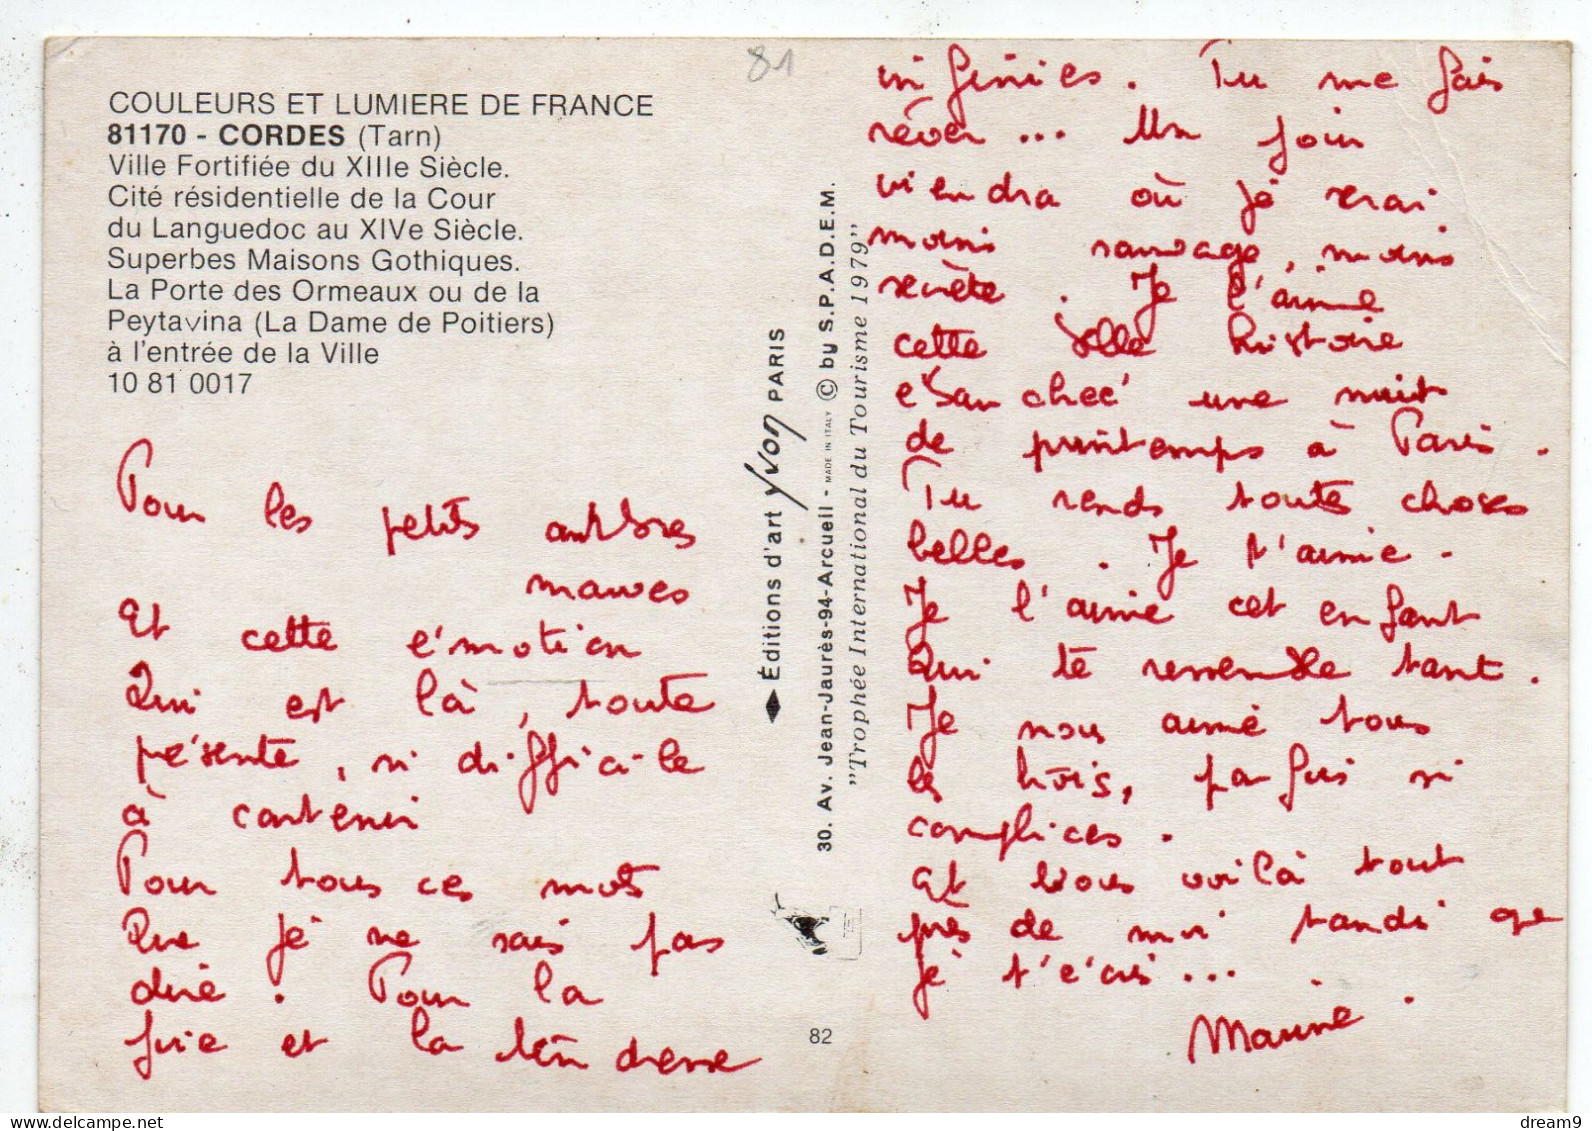 81
COULEURS ET LUMIERE DE FRANCE
81170 - CORDES (Tarn)
Ville Fortifiée du XIIIe Siècle.
Cité résidentielle de la Cour
du Languedoc au XIVe Siècle.
Superbes Maisons Gothiques.
La Porte des Ormeaux ou de la
Peytavina (La Dame de Poitiers)
à l'entrée de la Ville
10 81 0017
Pour les petits arbres
mauves
Et cette émotion
Qui est là, toute
présente, si difficile
à contenir
Pour tous ces mots
Que je ne sais pas
dire. Pour la
joie et la tendresse
Éditions d'art Yvon PARIS
30. Av. Jean-Jaurès-94-Arcueil - MADE IN ITALY © by S.P.A.D.E.M.
"Trophée International du Tourisme 1979"
82
infinies. Tu me fais
rêver... Un jour
viendra où je serai
moins sauvage, moins
secrète. Je l'aime
cette belle histoire
ébauchée une nuit
de printemps à Paris.
Tu rends toutes choses
belles. Je t'aime.
Je l'aime cet enfant
Qui te ressemble tant.
Je nous aime tous
les trois, parfois si
complices.
Et vous voilà tout
près de moi tandis que
je t'écris...
Marine.
dream9